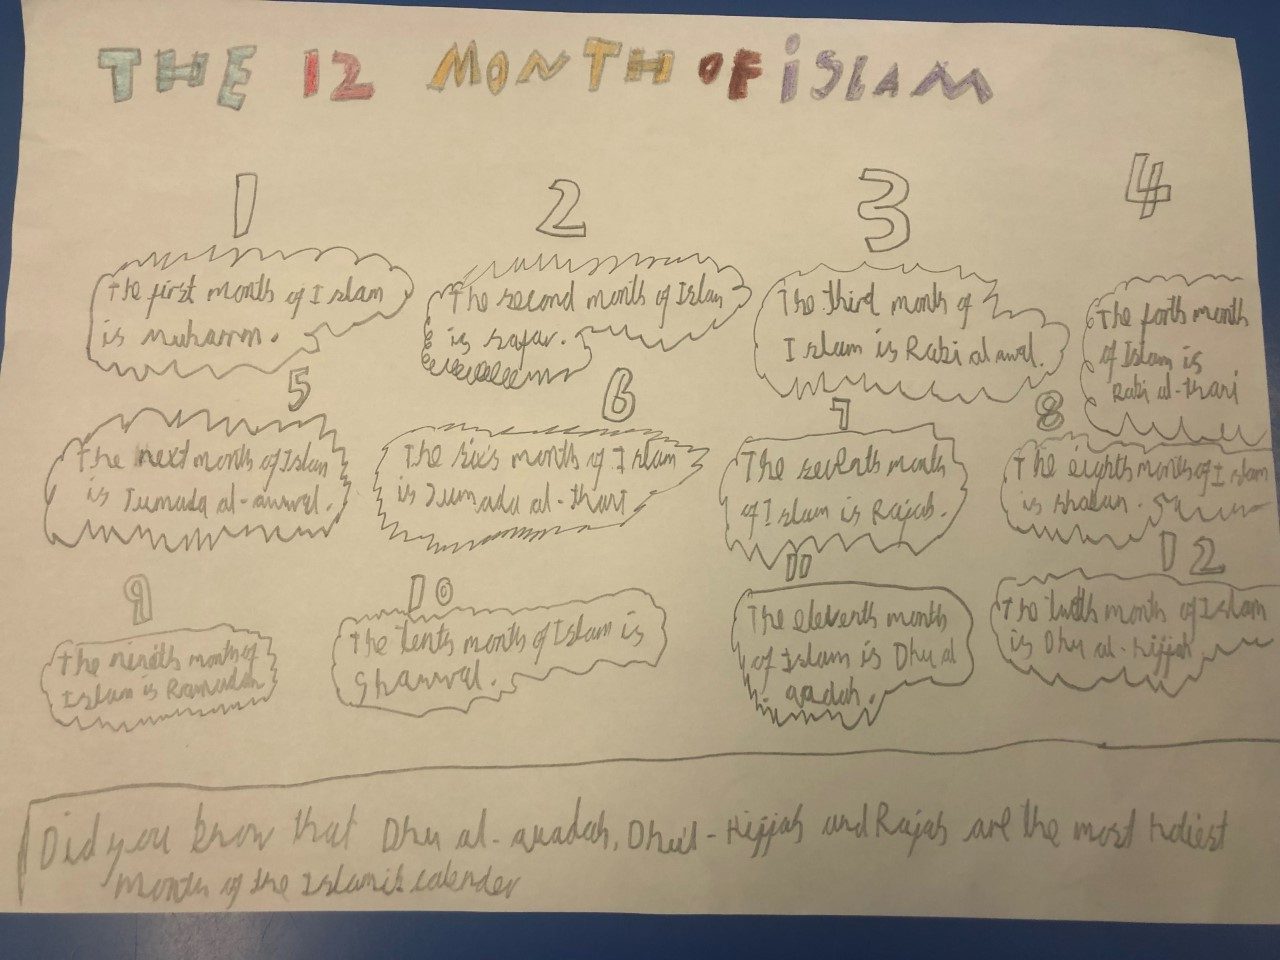 THE 12 MONTH OF iSLAM
1
The first month of Islam
is muharrm.
2
The second month of Islam
is safar.
3
The third month of
Islam is Rabi al awal.
4
The forth month
of Islam is
Rabi al-thani
5
The next month of Islam
is Jumada al-awwal.
6
The sixs month of Islam
is Jumada al-thani
7
The seventh month
of Islam is Rajab.
8
The eighth month of Islam
is shaban.
9
The month of
Islam is Ramadan
10
The tenth month of Islam is
Shawwal.
11
The eleventh month
of Islam is Dhu al
qadah.
12
The month of Islam
is Dhu al-Hijjah
Did you know that Dhu al-qaadah, Dhu'l-Hijjah and Rajab are the most holiest
month of the Islamic calender